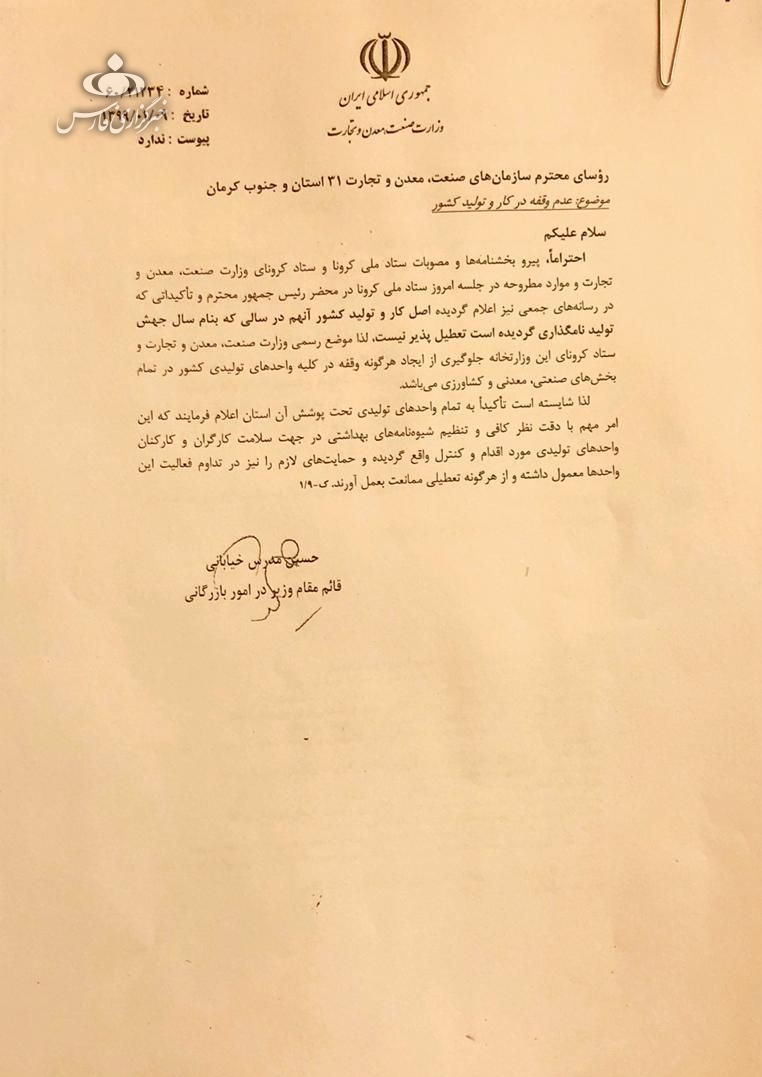 جمهوری اسلامی ایران
وزارت صنعت، معدن و تجارت
شماره :
تاریخ :
پیوست : ندارد
خبرگزاری فارس
رؤسای محترم سازمان‌های صنعت، معدن و تجارت ۳۱ استان و جنوب کرمان
موضوع: عدم وقفه در کار و تولید کشور
سلام علیکم
احتراماً، پیرو بخشنامه‌ها و مصوبات ستاد ملی کرونا و ستاد کرونای وزارت صنعت، معدن و
تجارت و موارد مطروحه در جلسه امروز ستاد ملی کرونا در محضر رئیس جمهور محترم و تأکیداتی که
در رسانه‌های جمعی نیز اعلام گردیده اصل کار و تولید کشور آنهم در سالی که بنام سال جهش
تولید نامگذاری گردیده است تعطیل پذیر نیست، لذا موضع رسمی وزارت صنعت، معدن و تجارت و
ستاد کرونای این وزارتخانه جلوگیری از ایجاد هرگونه وقفه در کلیه واحدهای تولیدی کشور در تمام
بخش‌های صنعتی، معدنی و کشاورزی می‌باشد.
لذا شایسته است تأکیداً به تمام واحدهای تولیدی تحت پوشش آن استان اعلام فرمایند که این
امر مهم با دقت نظر کافی و تنظیم شیوه‌نامه‌های بهداشتی در جهت سلامت کارگران و کارکنان
واحدهای تولیدی مورد اقدام و کنترل واقع گردیده و حمایت‌های لازم را نیز در تداوم فعالیت این
واحدها معمول داشته و از هرگونه تعطیلی ممانعت بعمل آورند. ک-۱/۹
حسین مدرس خیابانی
قائم مقام وزیر در امور بازرگانی